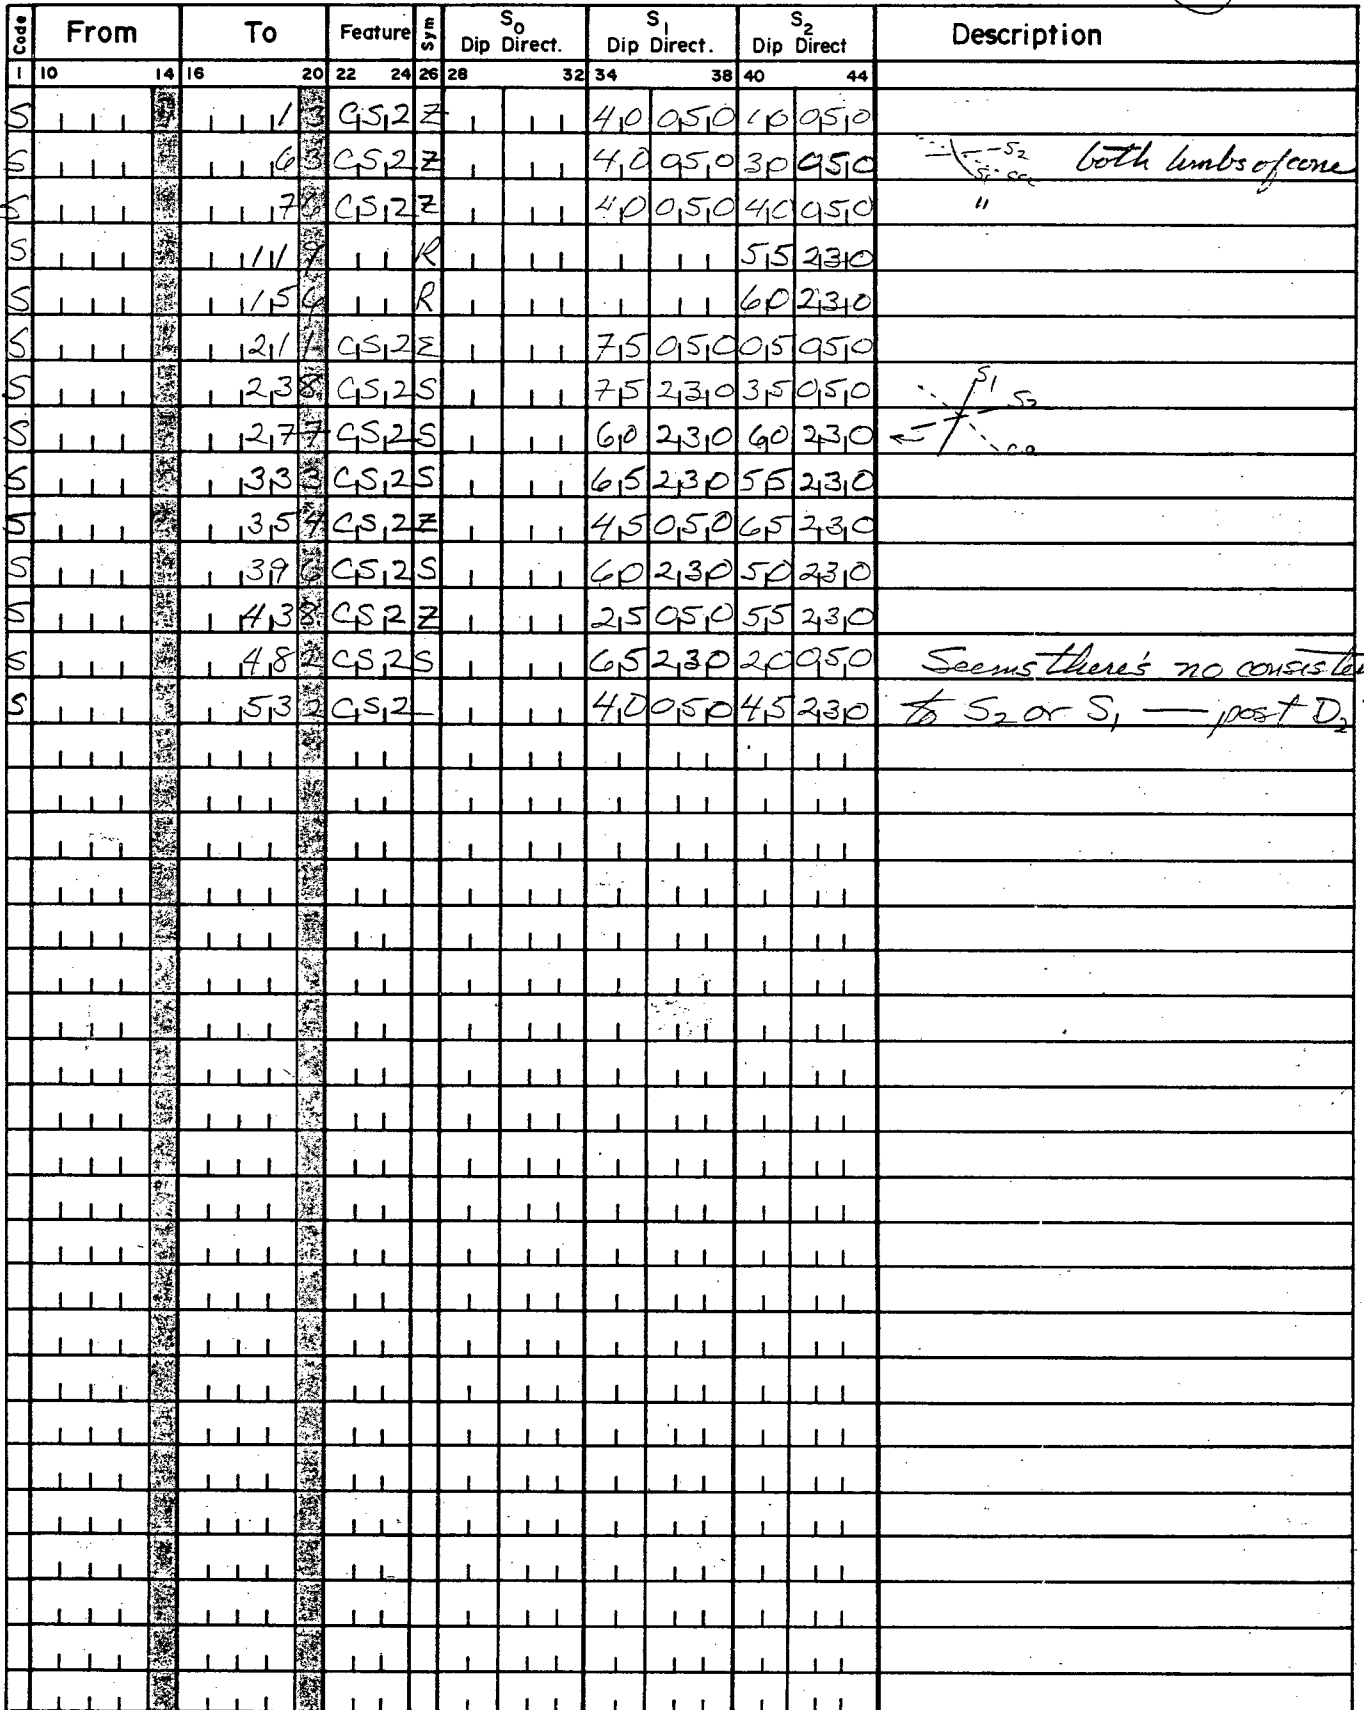 Code From To Feature Sym S0 Dip Direct. S1 Dip Direct. S2 Dip Direct Description
1 10 14 16 20 22 24 26 28 32 34 38 40 44
S 13 CS2 Z 40 050 10 050
S 63 CS2 Z 40 050 30 050 S2 S1 both limbs of
S CS2 Z 40 050 40 050 "
S 119 R 55 230
S 156 R 60 230
S 211 CS2 Σ 75 050 05 050
S 238 CS2 S 75 230 35 050 S1 S2
S 277 CS2 S 60 230 60 230 ca
S 333 CS2 S 65 230 55 230
S 354 CS2 Z 45 050 65 230
S 396 CS2 S 60 230 50 230
S 438 CS2 Z 25 050 55 230
S 482 CS2 S 65 230 20 050 Seems there's no consisten
S 532 CS2 — 40 050 45 230 to S2 or S1 — post D2